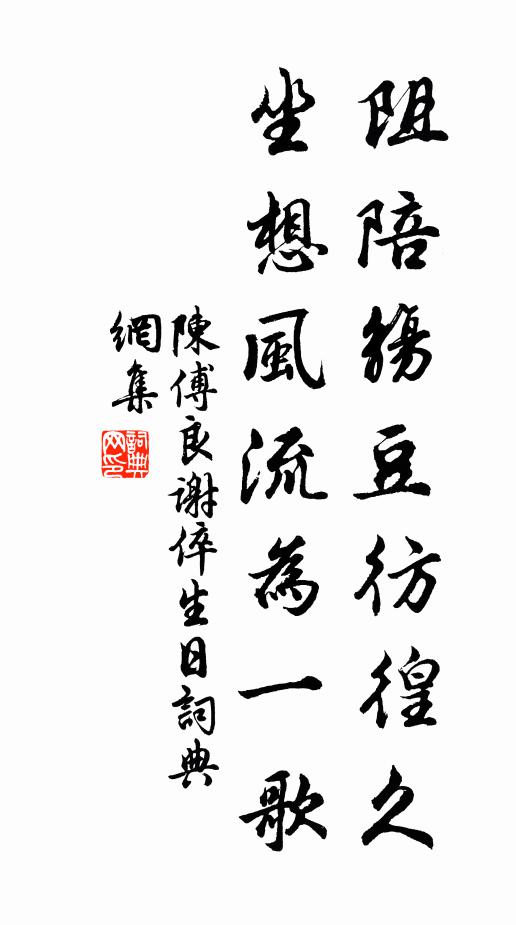 阻陪觴豆彷徨久
坐想風流為一歌
陳傅良謝倅生日詞典
網集
詞典網印